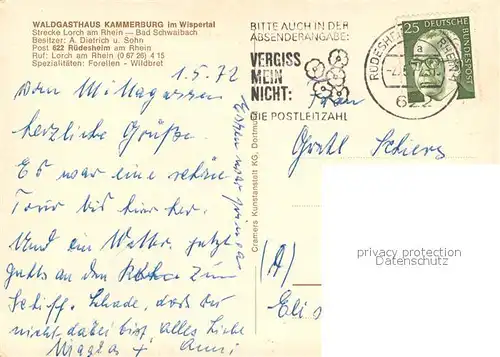 WALDGASTHAUS KAMMERBURG im Wispertal
Strecke Lorch am Rhein — Bad Schwalbach
Besitzer: A. Dietrich u. Sohn
Post 622 Rüdesheim am Rhein
Ruf: Lorch am Rhein (0 67 26) 4 15
Spezialitäten: Forellen - Wildbret
1.5.72
Vom Mittagessen
herzliche Grüße.
Es war eine schöne
Tour bis hierher.
Und ein Wetter, jetzt
gehts an den Rhein zum
Schiff. Schade, daß du
nicht dabei bist, alles Liebe
+ Anni
Essen war prima
Cramers Kunstanstalt KG, Dortmund
BITTE AUCH IN DER
ABSENDERANGABE:
VERGISS
MEIN
NICHT:
DIE POSTLEITZAHL
RÜDESHEIM
622
25
DEUTSCHE BUNDESPOST
Frau
(A)
privacy protection
Datenschutz